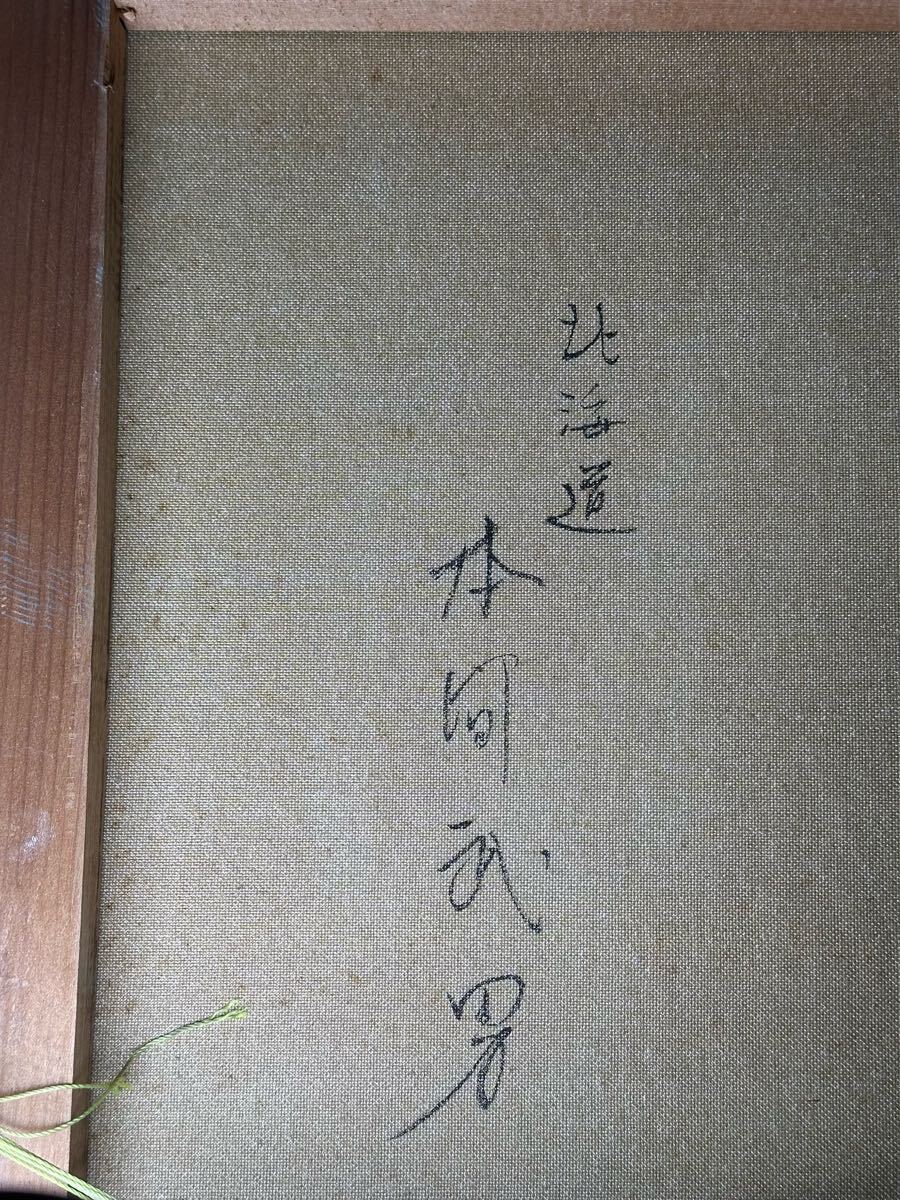 北海道
本间武男